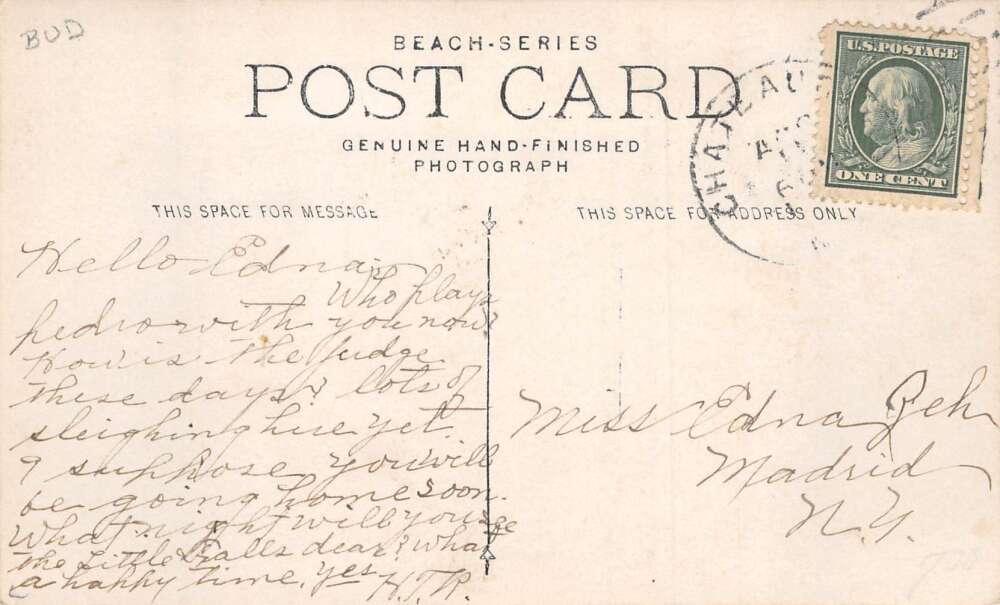 BUD
BEACH-SERIES
POST CARD
GENUINE HAND-FINISHED
PHOTOGRAPH
U.S. POSTAGE
ONE CENT
CHATEAU
THIS SPACE FOR MESSAGE
THIS SPACE FOR ADDRESS ONLY
Hello Edna,
Who plays
pedro with you now?
How is the Judge
these days? lots of
sleighing here yet.
I suppose you will
be going home soon.
What night will you
the Little Falls dear? What
a happy time, yes H.T.R.
Miss Edna
Madrid
N.Y.